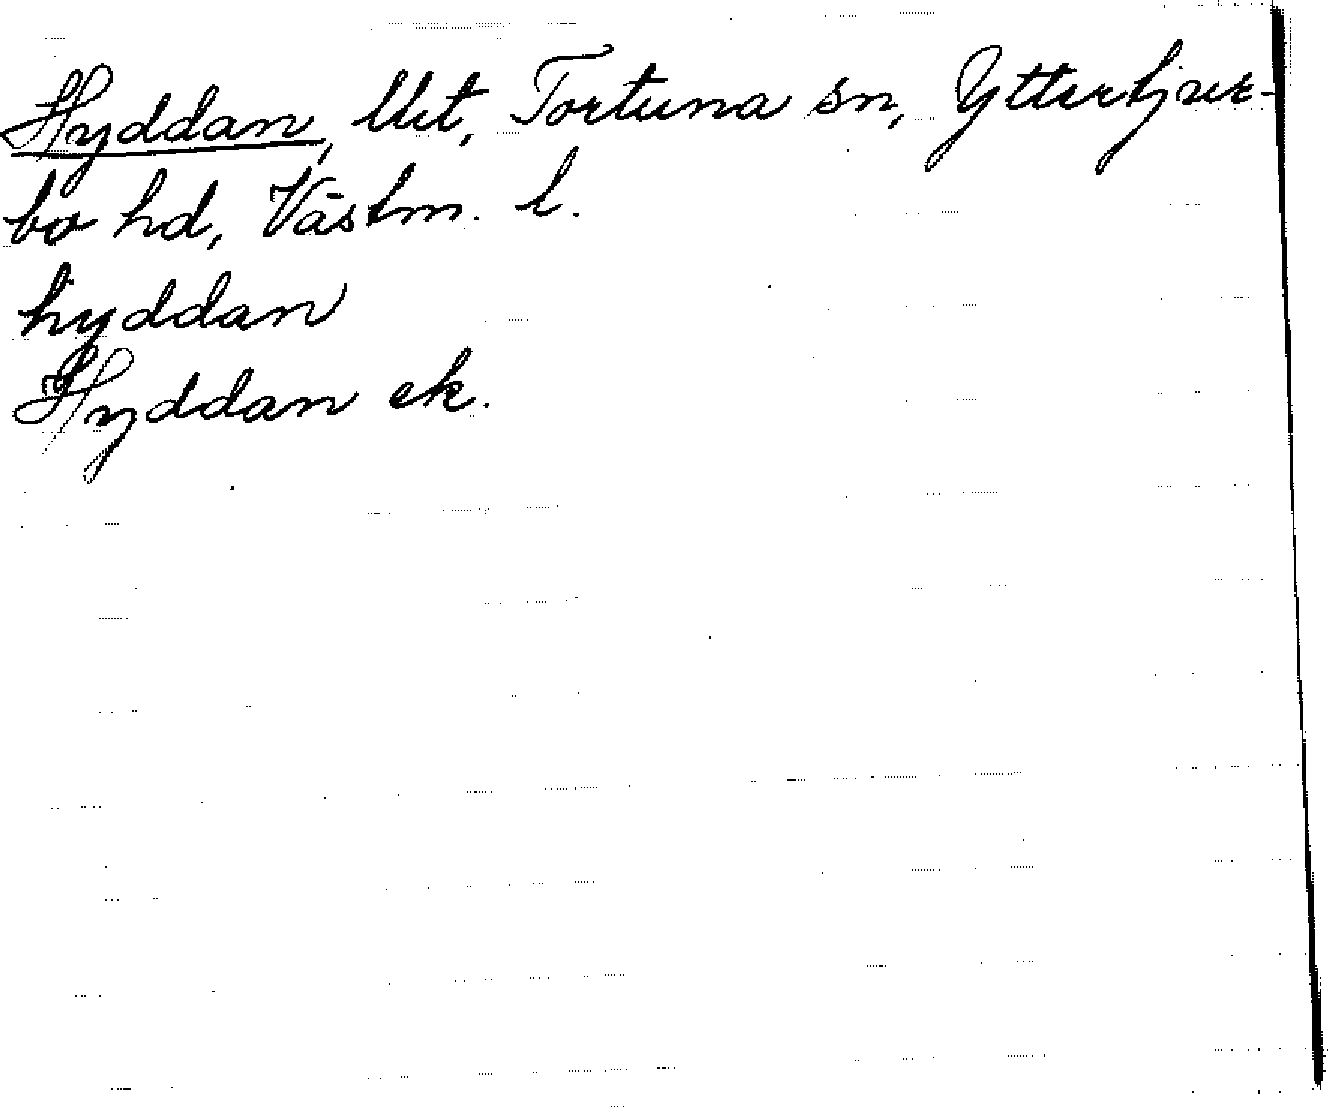 Hyddan, Utet, Tortuna sn, Ytterhjur-
bo hd, Västm. l.
hyddan
Hyddan ek.